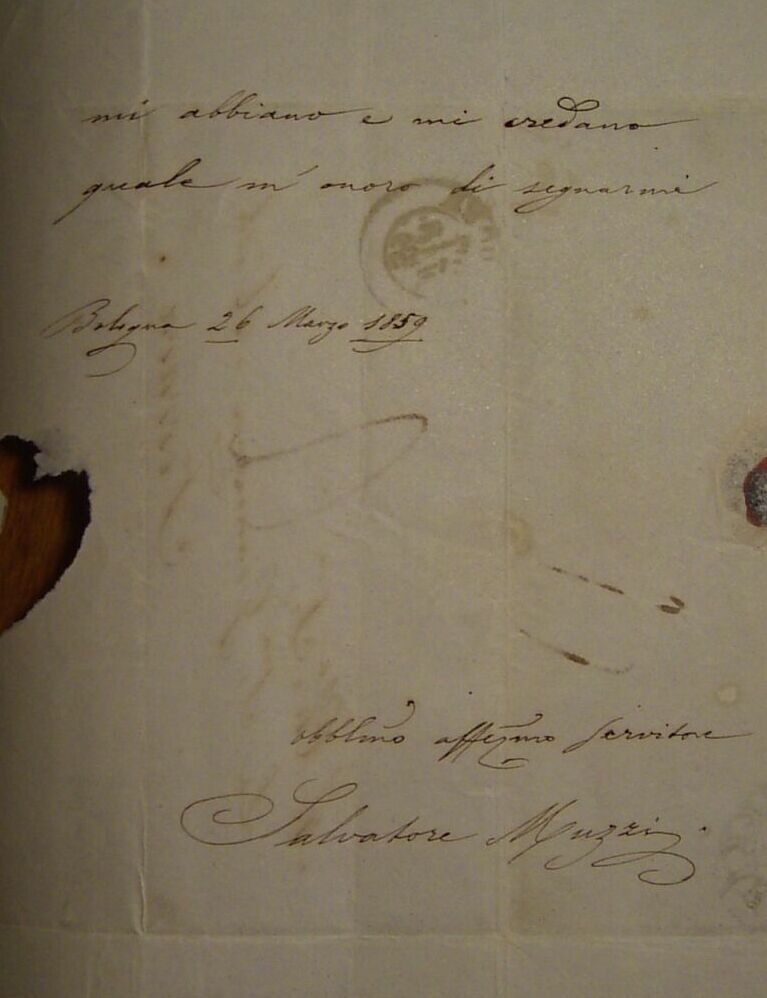 mi abbiano e mi credano
quale m' onoro di segnarmi
Bologna 26 Marzo 1859
obblmo affezmo servitore
Salvatore Muzzi